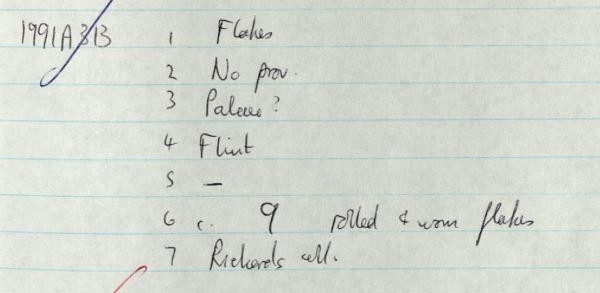 1991A313 1 Flakes
2 No prov.
3 Palaeo?
4 Flint
5 —
6 c. 9 rolled & worn flakes
7 Richards coll.